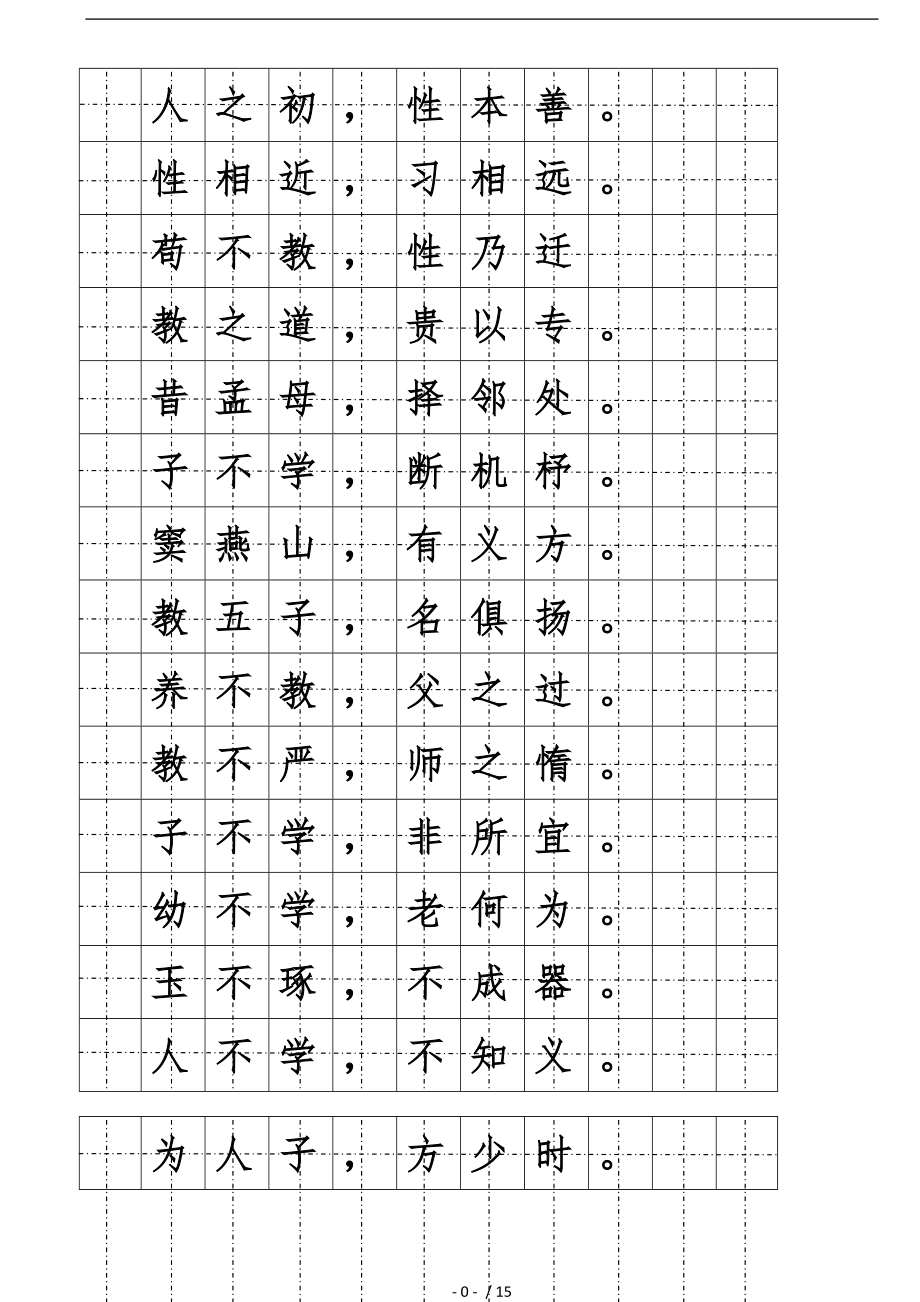 人之初，性本善。
性相近，习相远。
苟不教，性乃迁
教之道，贵以专。
昔孟母，择邻处。
子不学，断机杼。
窦燕山，有义方。
教五子，名俱扬。
养不教，父之过。
教不严，师之惰。
子不学，非所宜。
幼不学，老何为。
玉不琢，不成器。
人不学，不知义。
为人子，方少时。
- 0 - / 15